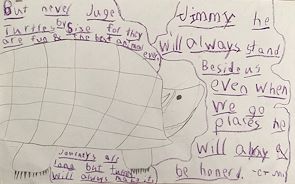 But never Juge
Turtles by Size for they
are fun & the best animal
ever
Jimmy he
will always stand
Beside us
even when
we go
places he
will alway
be honerd.
Journeys are
long but turtles
will always make it